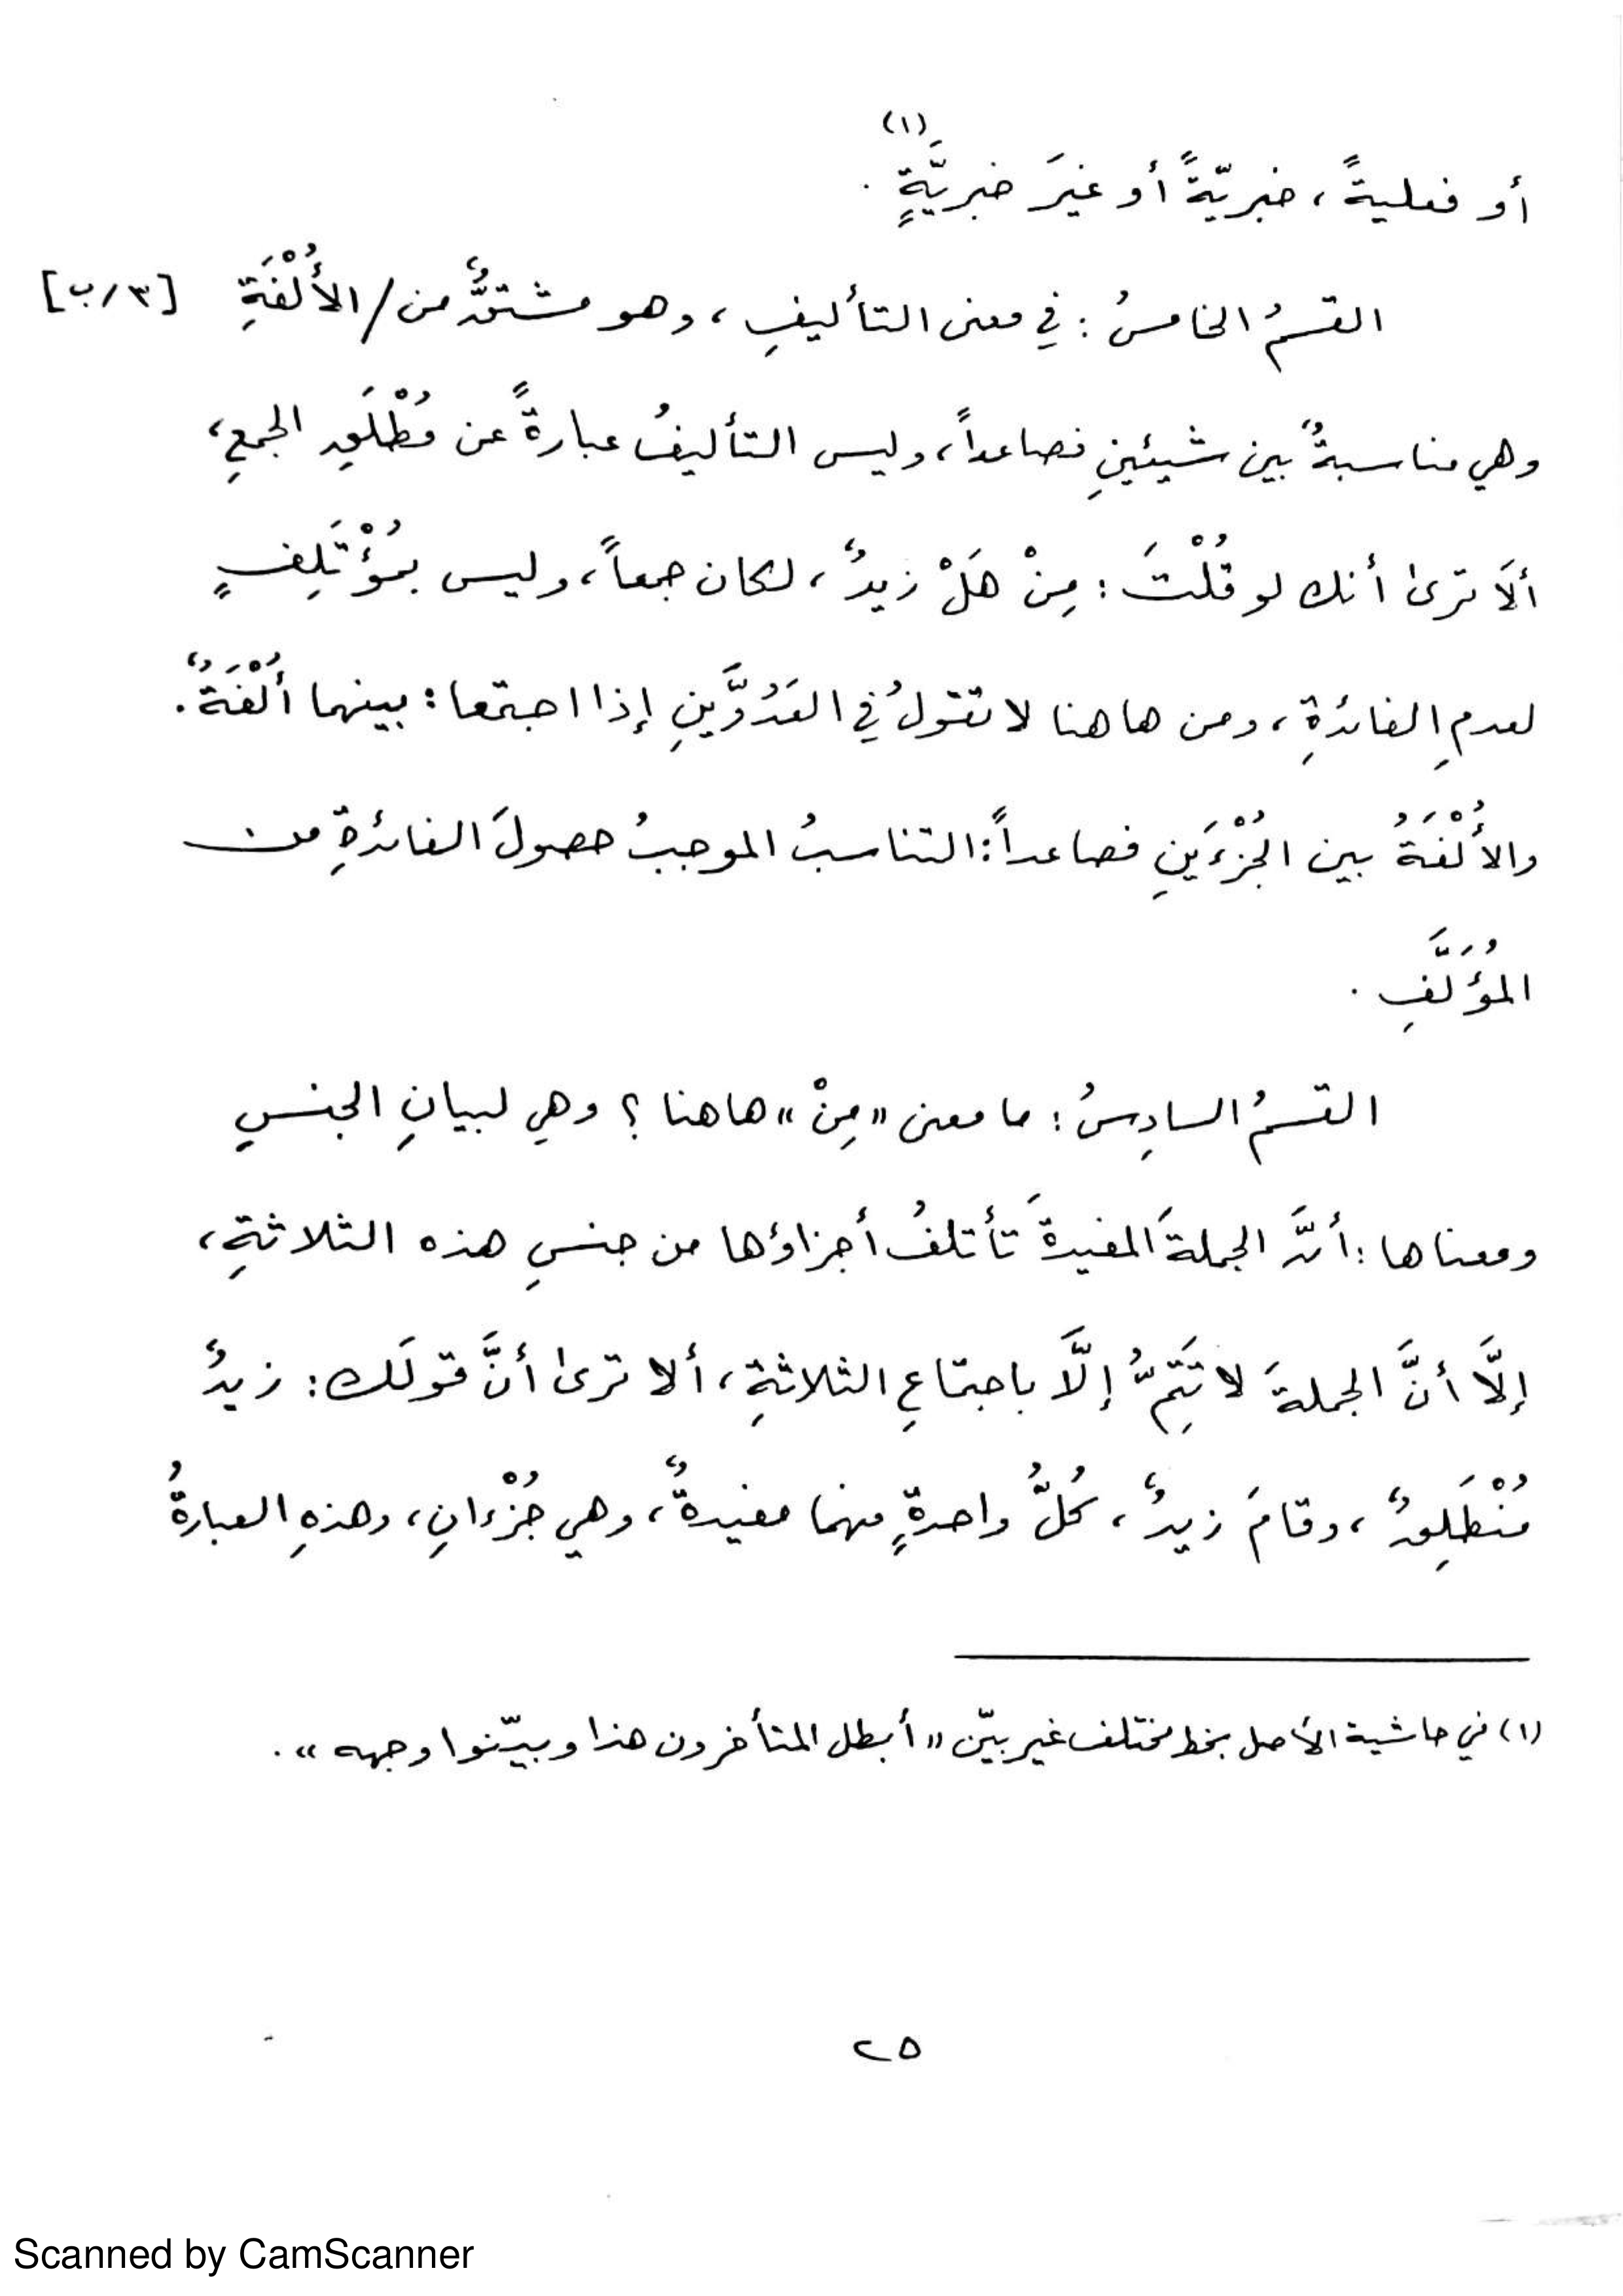 (١)
أو فعليةً، خبريّةً أو غيرَ خبريَّةٍ .
القسمُ الخامسُ : في معنى التأليفِ، وهو مشتقٌّ من / الأُلْفَةِ [٣/ب]
وهي مناسبةٌ بين شيئينِ فصاعداً، وليس التأليفُ عبارةً عن مُطْلَقِ الجمعِ،
ألَا ترىٰ أنك لو قُلْتَ : مِنْ هَلْ زيدٌ، لكان جمعاً، وليس بمُؤْتَلِفٍ
لعدمِ الفائدةِ، ومن هاهنا لا تقولُ في العَدُوَّينِ إذا اجتمعا : بينهما أُلْفَةٌ .
والأُلْفَةُ بين الجُزْءَينِ فصاعداً : التناسبُ الموجبُ حصولَ الفائدةِ من
المُؤَلَّفِ .
القسمُ السادِسُ : ما معنى «مِنْ» هاهنا ؟ وهي لبيانِ الجنسِ
ومعناها : أنَّ الجملةَ المفيدةَ تأتلفُ أجزاؤها من جنسِ هذه الثلاثةِ،
إلَّا أنَّ الجملةَ لا تَتِمُّ إلَّا باجتماعِ الثلاثةِ، ألا ترىٰ أنَّ قولَك : زيدٌ
مُنْطَلِقٌ، وقامَ زيدٌ، كُلُّ واحدةٍ منهما مفيدةٌ، وهي جُزْءانِ، وهذهِ العبارةُ
(١) في حاشية الأصل بخط مختلف غير بيّن «أبطل المتأخرون هذا وبيّنوا وجهه» .
٢٥
Scanned by CamScanner